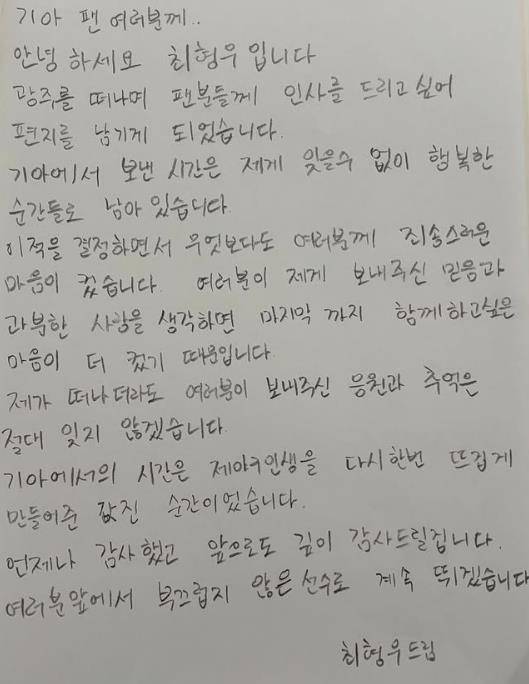 기아 팬 여러분께..
안녕 하세요 최형우 입니다
광주를 떠나며 팬분들께 인사를 드리고 싶어
편지를 남기게 되었습니다.
기아에서 보낸 시간은 제게 잊을수 없이 행복한
순간들로 남아 있습니다.
이적을 결정하면서 무엇보다도 여러분께 죄송스러운
마음이 컸습니다. 여러분이 제게 보내주신 믿음과
과분한 사랑을 생각하면 마지막 까지 함께하고싶은
마음이 더 컸기 때문입니다.
제가 떠나더라도 여러분이 보내주신 응원과 추억은
절대 잊지 않겠습니다.
기아에서의 시간은 제야구인생을 다시한번 뜨겁게
만들어준 값진 순간이었습니다.
언제나 감사했고 앞으로도 깊이 감사드릴겁니다.
여러분앞에서 부끄럽지 않은선수로 계속 뛰겠습니다
최형우드림